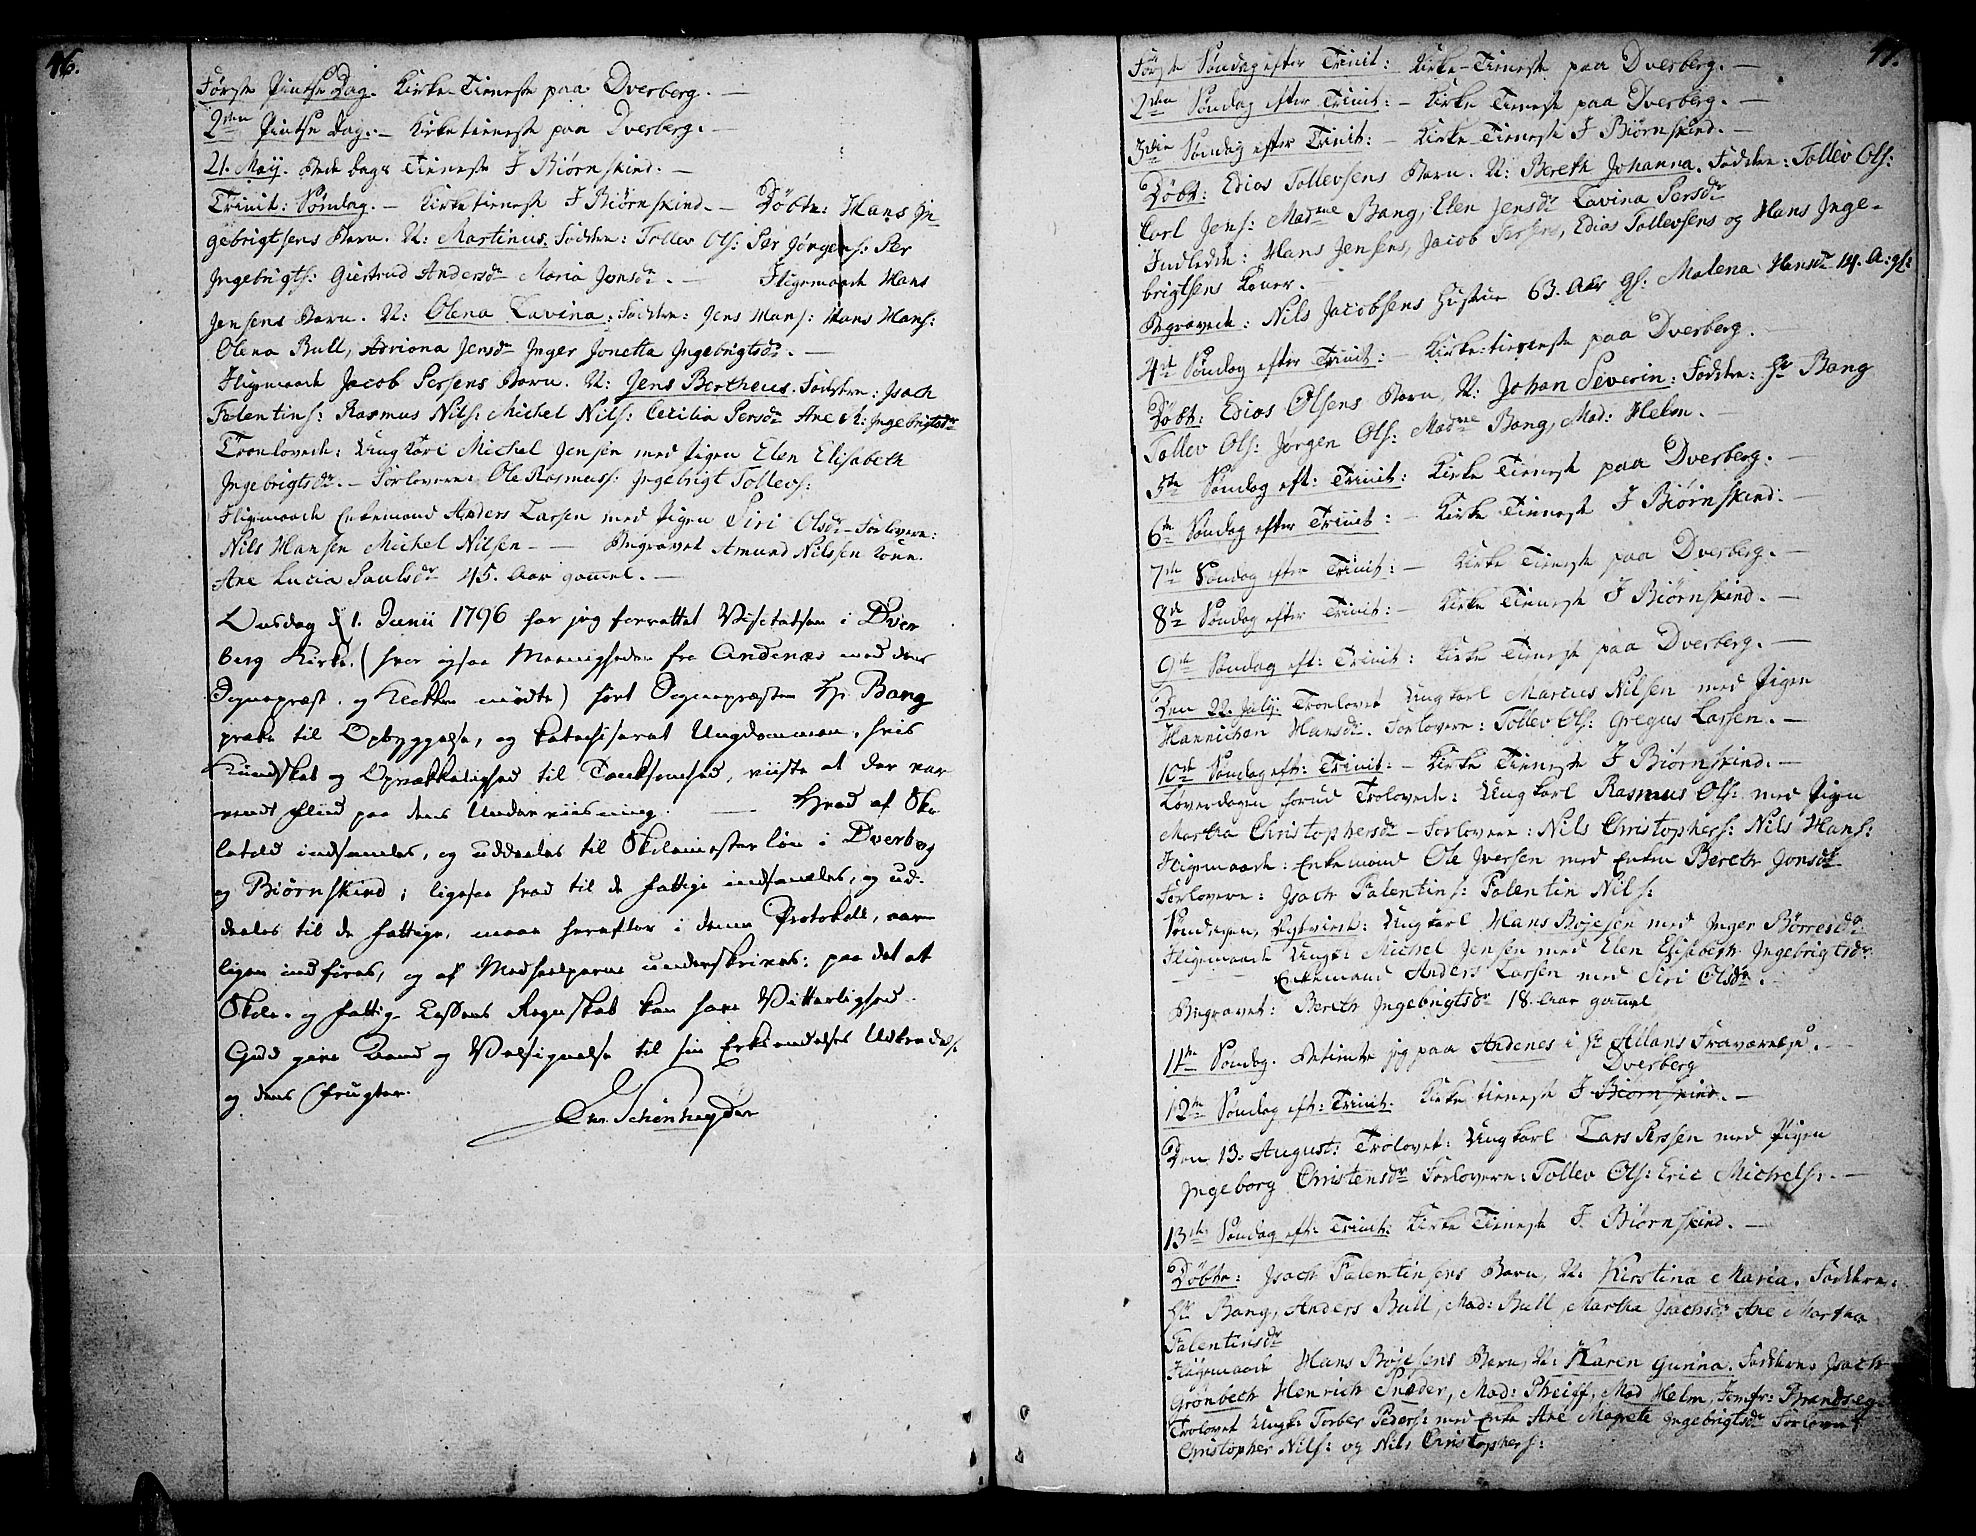 46.
Første Pintse Dag. Kirke-Tieneste paa Dverberg. —
2den Pintse Dag. — Kirketieneste paa Dverberg. —
21. Maij. Bededags Tieneste J Biørnskind. —
Trinit: Søndag. — Kirketieneste J Biørnskind. — Døbte: Hans In
gebrigtsens Barn. N: Martinus. Faddere: Tollev Ols: Per Jørgens: Per
Ingebrigts: Giertrud Andersdr Maria Jonsdr. — Iligemaade Hans
Jensens Barn. N: Olena Lavina. Faddere: Jens Hans: Hans Hans:
Olena Bull, Adriana Jensdr Inger Jonetta Ingebrigtsdr. —
Iligemaade Jacob Persens Barn. N: Jens Bertheus. Faddere: Isach
Falentins: Rasmus Nils: Michel Nils: Cecilia Persdr Ane M: Ingebrigtsdr
Troelovede: Ungkarl Michel Jensen med Pigen Elen Elisabeth
Ingebrigtsdr. — Forlovere: Ole Rasmuss: Ingebrigt Tollevs:
Iligemaade Enkemand Anders Larsen med Pigen Siri Olsdr — Forlovere:
Nils Hansen Michel Nilsen. — Begravet Amund Nilssen Kone.
Ane Lucia Paulsdr 45. Aar gammel. —
Onsdag d 1. Junii 1796 har jeg forrettet Visitatsen i Dver
berg Kirke, (hvor ogsaa Meenigheden fra Andenæs med dens
Sognepræst og Klokker mødte) hørt Sognepræsten Hr Bang
præke til Opbyggelse, og katechiseret Ungdommen, hvis
Kundskab og Opvækkelighed til Tænksomhed, viiste at der var
vendt Fliid paa dens Underviisning. — Hvad af Sko
lehold indsamles, og uddeeles til Skolemesterløn i Dverberg
og Biørnskind; ligesaa hvad til de fattige indsamles, og ud-
deeles til de fattige, maae herefter i denne Protokoll, aar-
ligen indføres, og af Medhielperne underskrives: paa det at
Skole- og Fattig-Cassens Regnskab kan have Vitterlighed.
Gud give Aand og Velsignelse til sin Erkiendelses Udbredelse
og dens Frugter.
Chr. Schønheyder
47.
Første Søndag efter Trinit: Kirke-Tieneste paa Dverberg. —
2den Søndag efter Trinit: — Kirke Tieneste paa Dverberg. —
3die Søndag efter Trinit: — Kirke-Tieneste J Biørnskind. —
Døbt: Edias Tollevsens Barn. N: Bereth Johanna. Faddere: Tollev Ols:
Carl Jens: Madme Bang, Elen Jensdr Lavina Persdr
Indledde: Hans Jensens, Jacob Persens, Edias Tollevsens og Hans Inge-
brigtsens Koner. —
Begravede: Nils Jacobsens Hustrue 63. Aar gl: Malena Hansdr 14. A: gl:
4de Søndag efter Trinit: — Kirke-tieneste paa Dverberg. —
Døbt: Edias Olsens Barn, N: Johan Severin: Faddere: Hr Bang
Tollev Ols: Jørgen Ols: Madme Bang, Mad: Helm. —
5te Søndag eft: Trinit: Kirke Tieneste paa Dverberg. —
6te Søndag efter Trinit: — Kirke Tieneste J Biørnskind. —
7de Søndag efter Trinit: — Kirke Tieneste paa Dverberg. —
8de Søndag efter Trinit: — Kirke Tieneste J Biørnskind. —
9de Søndag eft: Trinit: Kirke Tieneste paa Dverberg. —
Den 22. July. Troelovet Ungkarl Marcus Nilsen med Pigen
Hannichen Hansdr. Forlovere: Tollev Ols: Gregus Larsen. —
10de Søndag eft: Trinit: — Kirke Tieneste J Biørnskind. —
Løverdagen forud Trolovede: Ungkarl Rasmus Ols: med Pigen
Martha Christophersdr — Forlovere: Nils Christophers: Nils Hans:
Iligemaade: Enkemand Ole Iversen med Enken Bereth Jonsdr
Forlovere: Isach Falentins: Falentin Nils:
Søndagen, Egteviede: Ungkarl Hans Bøjesen med Inger Børresdr
Iligemaade Ungk: Michel Jensen med Elen Elisabeth Ingebrigtsdr
— Enkemand Anders Larsen med Siri Olsdr. —
Begravet: Bereth Ingebrigtsdr 18. Aar gammel
11te Søndag. Betiente jeg paa Andenes i Hr Allans Fraværelse. —
Dverberg
12te Søndag eft: Trinit. Kirke tieneste J Biørnskind. —
Den 13. August: Trolovet: Ungkarl Lars Perssen med Pigen
Ingeborg Christensdr Forlovere: Tollev Ols: Eric Michels: —
13de Søndag eft: Trinit: Kirke Tieneste J Biørnskind. —
Døbte: Isach Falentinsens Barn, N: Kirstina Maria. Faddere:
Hr Bang, Anders Bull, Mad: Bull, Martha Isachsdr Ane Martha
Falentinsdr
Iligemaade Hans Bøjesens Barn, N: Karen Gurina. Faddere: Isach
Grønbech Henrich Snæder, Mad: Pheiff, Mad Helm, Jomfr:
Trolovet Ungk: Torber Peders: med Enke Ane Magrete Ingebrigtsdr Forlovere:
Christopher Nils: og Nils Christophers: